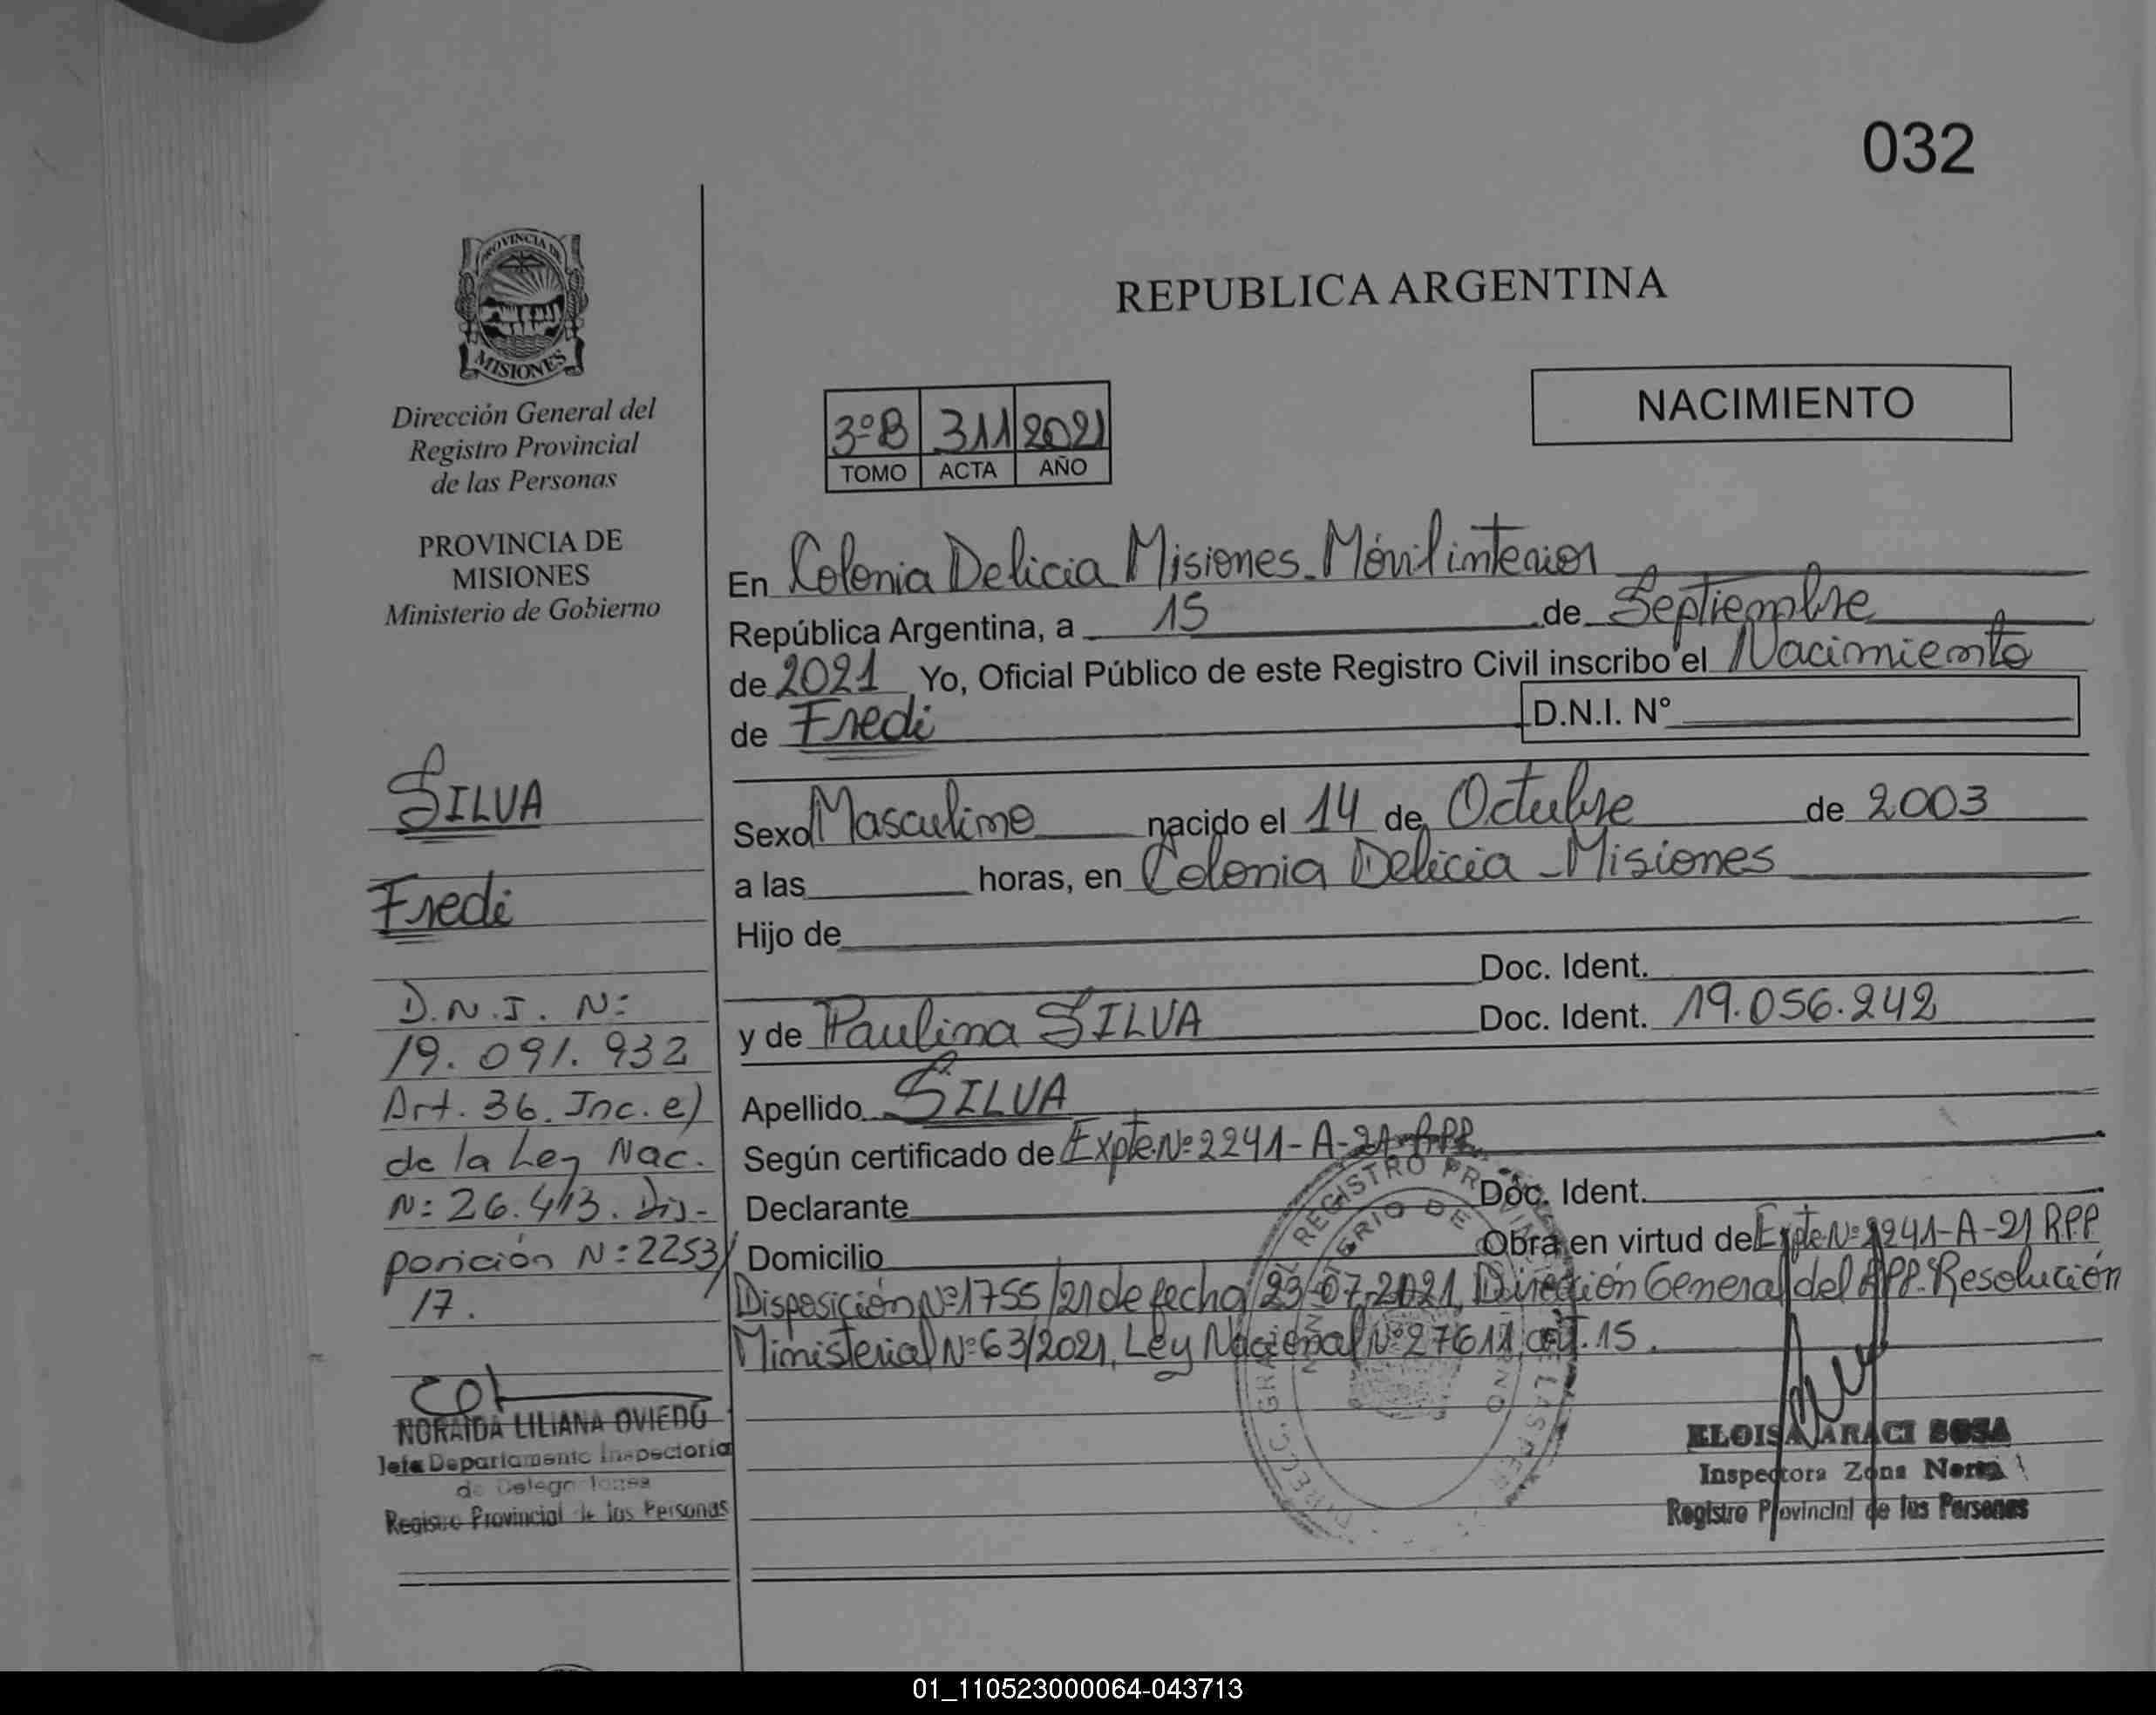 032
PROVINCIA DE
MISIONES
Dirección General del
Registro Provincial
de las Personas
PROVINCIA DE
MISIONES
Ministerio de Gobierno
SILVA
Fredi
D.N.I. Nº
19.091.932
Art. 36. Inc. e)
de la Ley Nac.
Nº 26.413. Dis-
posición Nº 2253/
17.
NORAIDA LILIANA OVIEDO
Jefa Departamento Inspectoria
de Delegaciones
Registro Provincial de las Personas
REPUBLICA ARGENTINA
NACIMIENTO
3ºB 311 2021
TOMO ACTA AÑO
En Colonia Delicia Misiones. Móvil interior
República Argentina, a 15 de Septiembre
de 2021 Yo, Oficial Público de este Registro Civil inscribo el Nacimiento
de Fredi D.N.I. Nº
Sexo Masculino nacido el 14 de Octubre de 2003
a las horas, en Colonia Delicia - Misiones
Hijo de
Doc. Ident.
y de Paulina SILVA Doc. Ident. 19.056.242
Apellido SILVA
Según certificado de Expte.Nº 2241-A-21-RPP
Declarante Doc. Ident.
Domicilio Obra en virtud de Expte.Nº 2241-A-21 R.P.P.
Disposición Nº 1755/21 de fecha 23-07-2021, Dirección General del RPP. Resolución
Ministerial Nº 63/2021, Ley Nacional Nº 27611, art. 15.
REGISTRO
ELOISA ARACI SOSA
Inspectora Zona Norte
Registro Provincial de las Personas
01_110523000064-043713